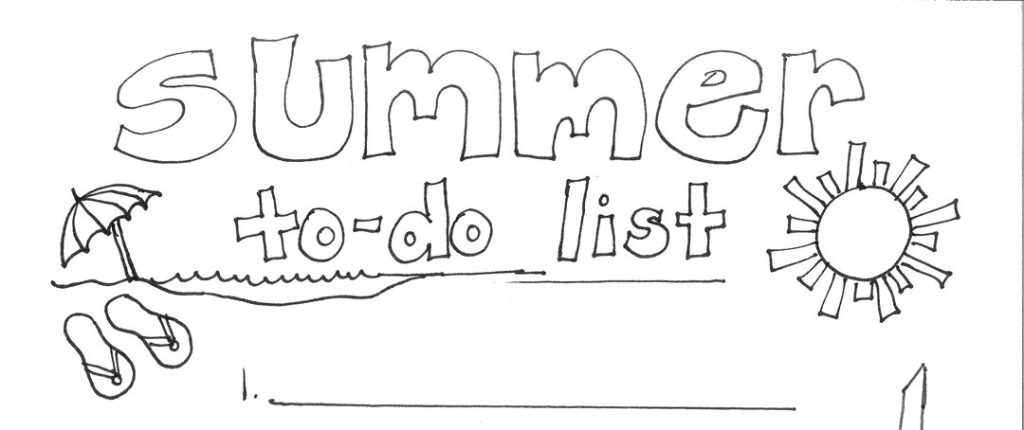 summer
to-do list
1.